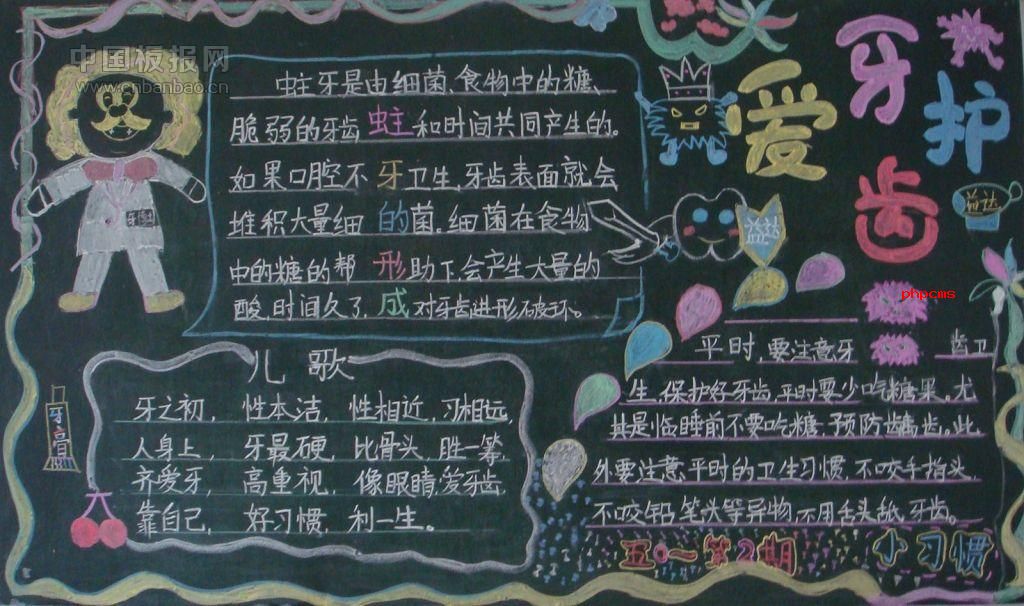 中国板报网
www.cnbanbao.cn
爱牙护齿
益达
益达
phpcms
蛀牙是由细菌、食物中的糖、
脆弱的牙齿 蛀 和时间共同产生的。
如果口腔不 牙 卫生,牙齿表面就会
堆积大量细 的 菌。细菌在食物
中的糖的帮 形 助下,会产生大量的
酸,时间久了, 成 对牙齿进形破坏。
儿歌
牙之初, 性本洁, 性相近, 习相远,
人身上, 牙最硬, 比骨头, 胜一筹,
齐爱牙, 高重视, 像眼睛,爱牙齿,
靠自己, 好习惯, 利一生。
牙膏
平时,要注意牙 齿卫
生,保护好牙齿,平时要少吃糖果。尤
其是临睡前不要吃糖,预防龋齿。此
外要注意平时的卫生习惯,不咬手指头,
不咬铅笔头等异物,不用舌头舐牙齿。
五0一第2期
小习惯